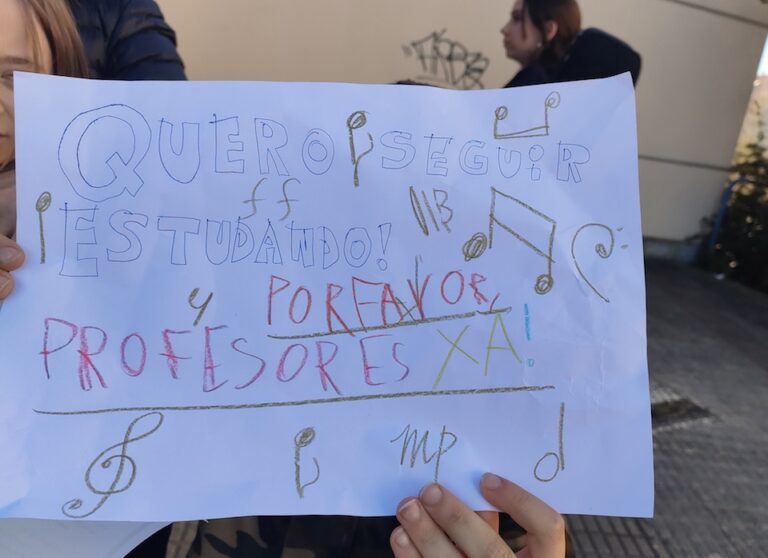 QUERO SEGUIR
ff
ESTUDANDO!
POR FAVOR,
PROFESORES XA!
mp